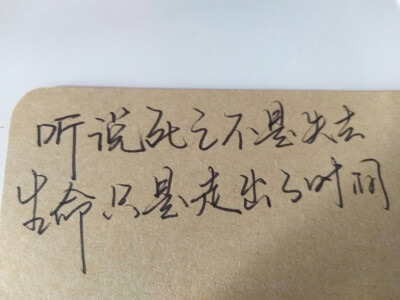 听说死亡不是失去
生命只是走出了时间